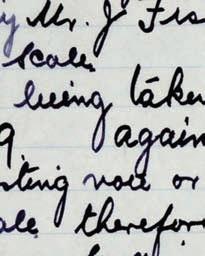 by Mr. J Fis
scale.
being taken
9 again
sting vote or
ale therefore